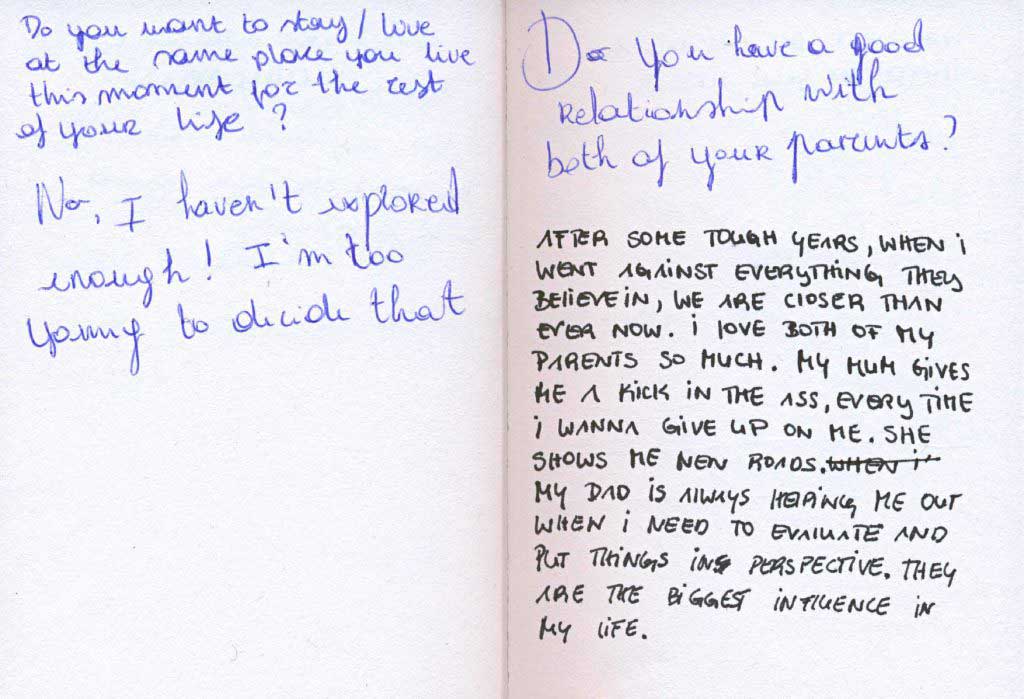 Do you want to stay / live
at the same place you live
this moment for the rest
of your life ?
No, I haven't explored
enough! I'm too
young to decide that
Do you have a good
relationship with
both of your parents?
AFTER SOME TOUGH YEARS, WHEN i
WENT AGAINST EVERYTHING THEY
BELIEVE IN, WE ARE CLOSER THAN
EVER NOW. i LOVE BOTH OF MY
PARENTS SO MUCH. MY MUM GiVES
ME A KiCK iN THE ASS, EVERY TiME
i WANNA GiVE UP ON ME. SHE
SHOWS ME NEW ROADS. WHEN i
MY DAD iS ALWAYS HELPiNG ME OUT
WHEN i NEED TO EVALUATE AND
PUT THiNGS iN PERSPECTiVE. THEY
ARE THE BiGGEST iNFLUENCE iN
MY LiFE.